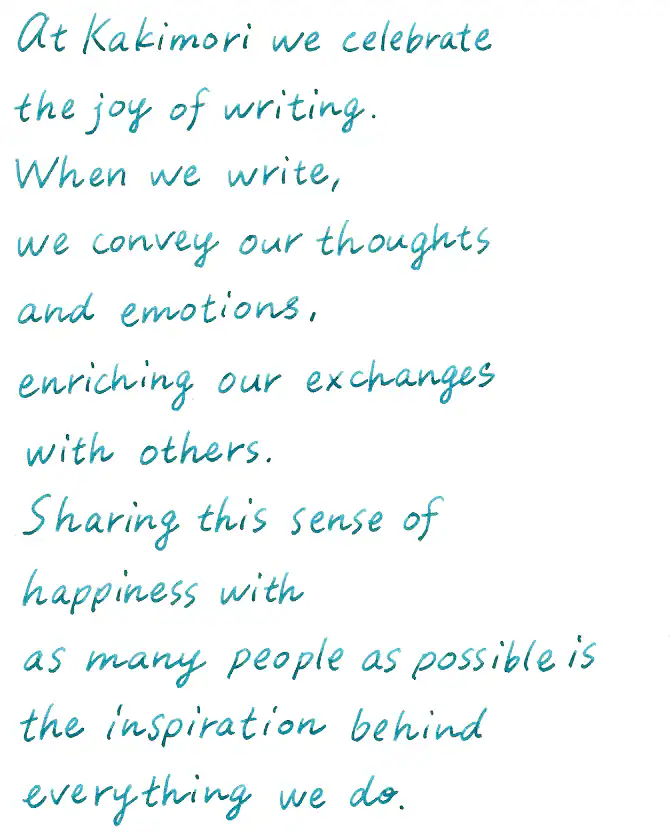 At Kakimori we celebrate
the joy of writing.
When we write,
we convey our thoughts
and emotions,
enriching our exchanges
with others.
Sharing this sense of
happiness with
as many people as possible is
the inspiration behind
everything we do.